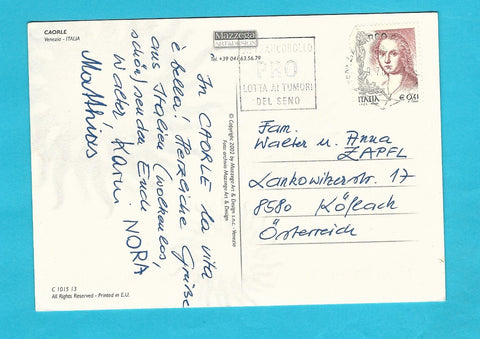 CAORLE
Venezia - ITALIA
Mazzega
ART&DESIGN
Tel. +39 041 63.56.79
PRO
LOTTA AI TUMORI
DEL SENO
ITALIA € 0,41
In CAORLE la vita
è bella! Herzliche Grüße
aus Italien (wolkenlos,
schön) senden Euch
Walter Karin NORA
Matthias
© Copyright 2002 by Mazzega Art & Design s.n.c. - Venezia
Foto archivio Mazzega Art & Design
Fam.
Walter u. Anna
ZAPFL
Lankowitzerstr. 17
8580 Köflach
Österreich
C 1015 13
All Rights Reserved - Printed in E.U.